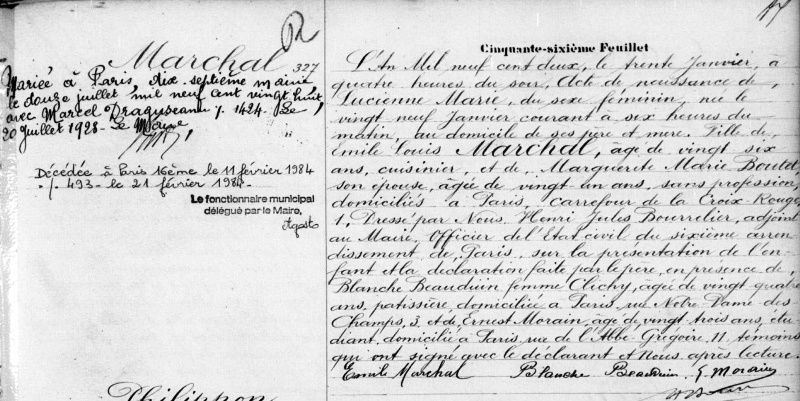 Marchal
327
Mariée à Paris dix-septième mairie
le douze juillet mil neuf cent vingt huit
avec Marcel
20 juillet 1928 - Le Maire
Décédée à Paris 16ème le 11 février 1984
493 - le 21 février 1984.
Le fonctionnaire municipal
délégué par le Maire,
Cinquante-sixième Feuillet
L'An Mil neuf cent deux, le trente Janvier, à
quatre heures du soir, Acte de naissance de
Lucienne Marie, du sexe féminin, née le
vingt neuf Janvier courant à six heures du
matin, au domicile de ses père et mère. Fille de
Emile Louis Marchal, âgé de vingt six
ans, cuisinier, et de Marguerite Marie Boutet,
son épouse, âgée de vingt un ans, sans profession,
domiciliés à Paris, carrefour de la Croix-Rouge,
1, Dressé par Nous Henri Jules Bourrelier, adjoint
au Maire, Officier de l'Etat civil du sixième arron-
dissement de Paris, sur la présentation de l'en-
fant et la déclaration faite par le père, en présence de
Blanche Beauduin femme Clichy, âgée de vingt quatre
ans, patissière domiciliée à Paris, rue Notre Dame des
Champs, 3, et de Ernest Morain, âgé de vingt trois ans, étu-
diant, domicilié à Paris, rue de l'Abbé-Grégoire, 11, témoins
qui ont signé avec le déclarant et Nous après lecture.
Emile Marchal Blanche Beauduin E. Morain
Philippon